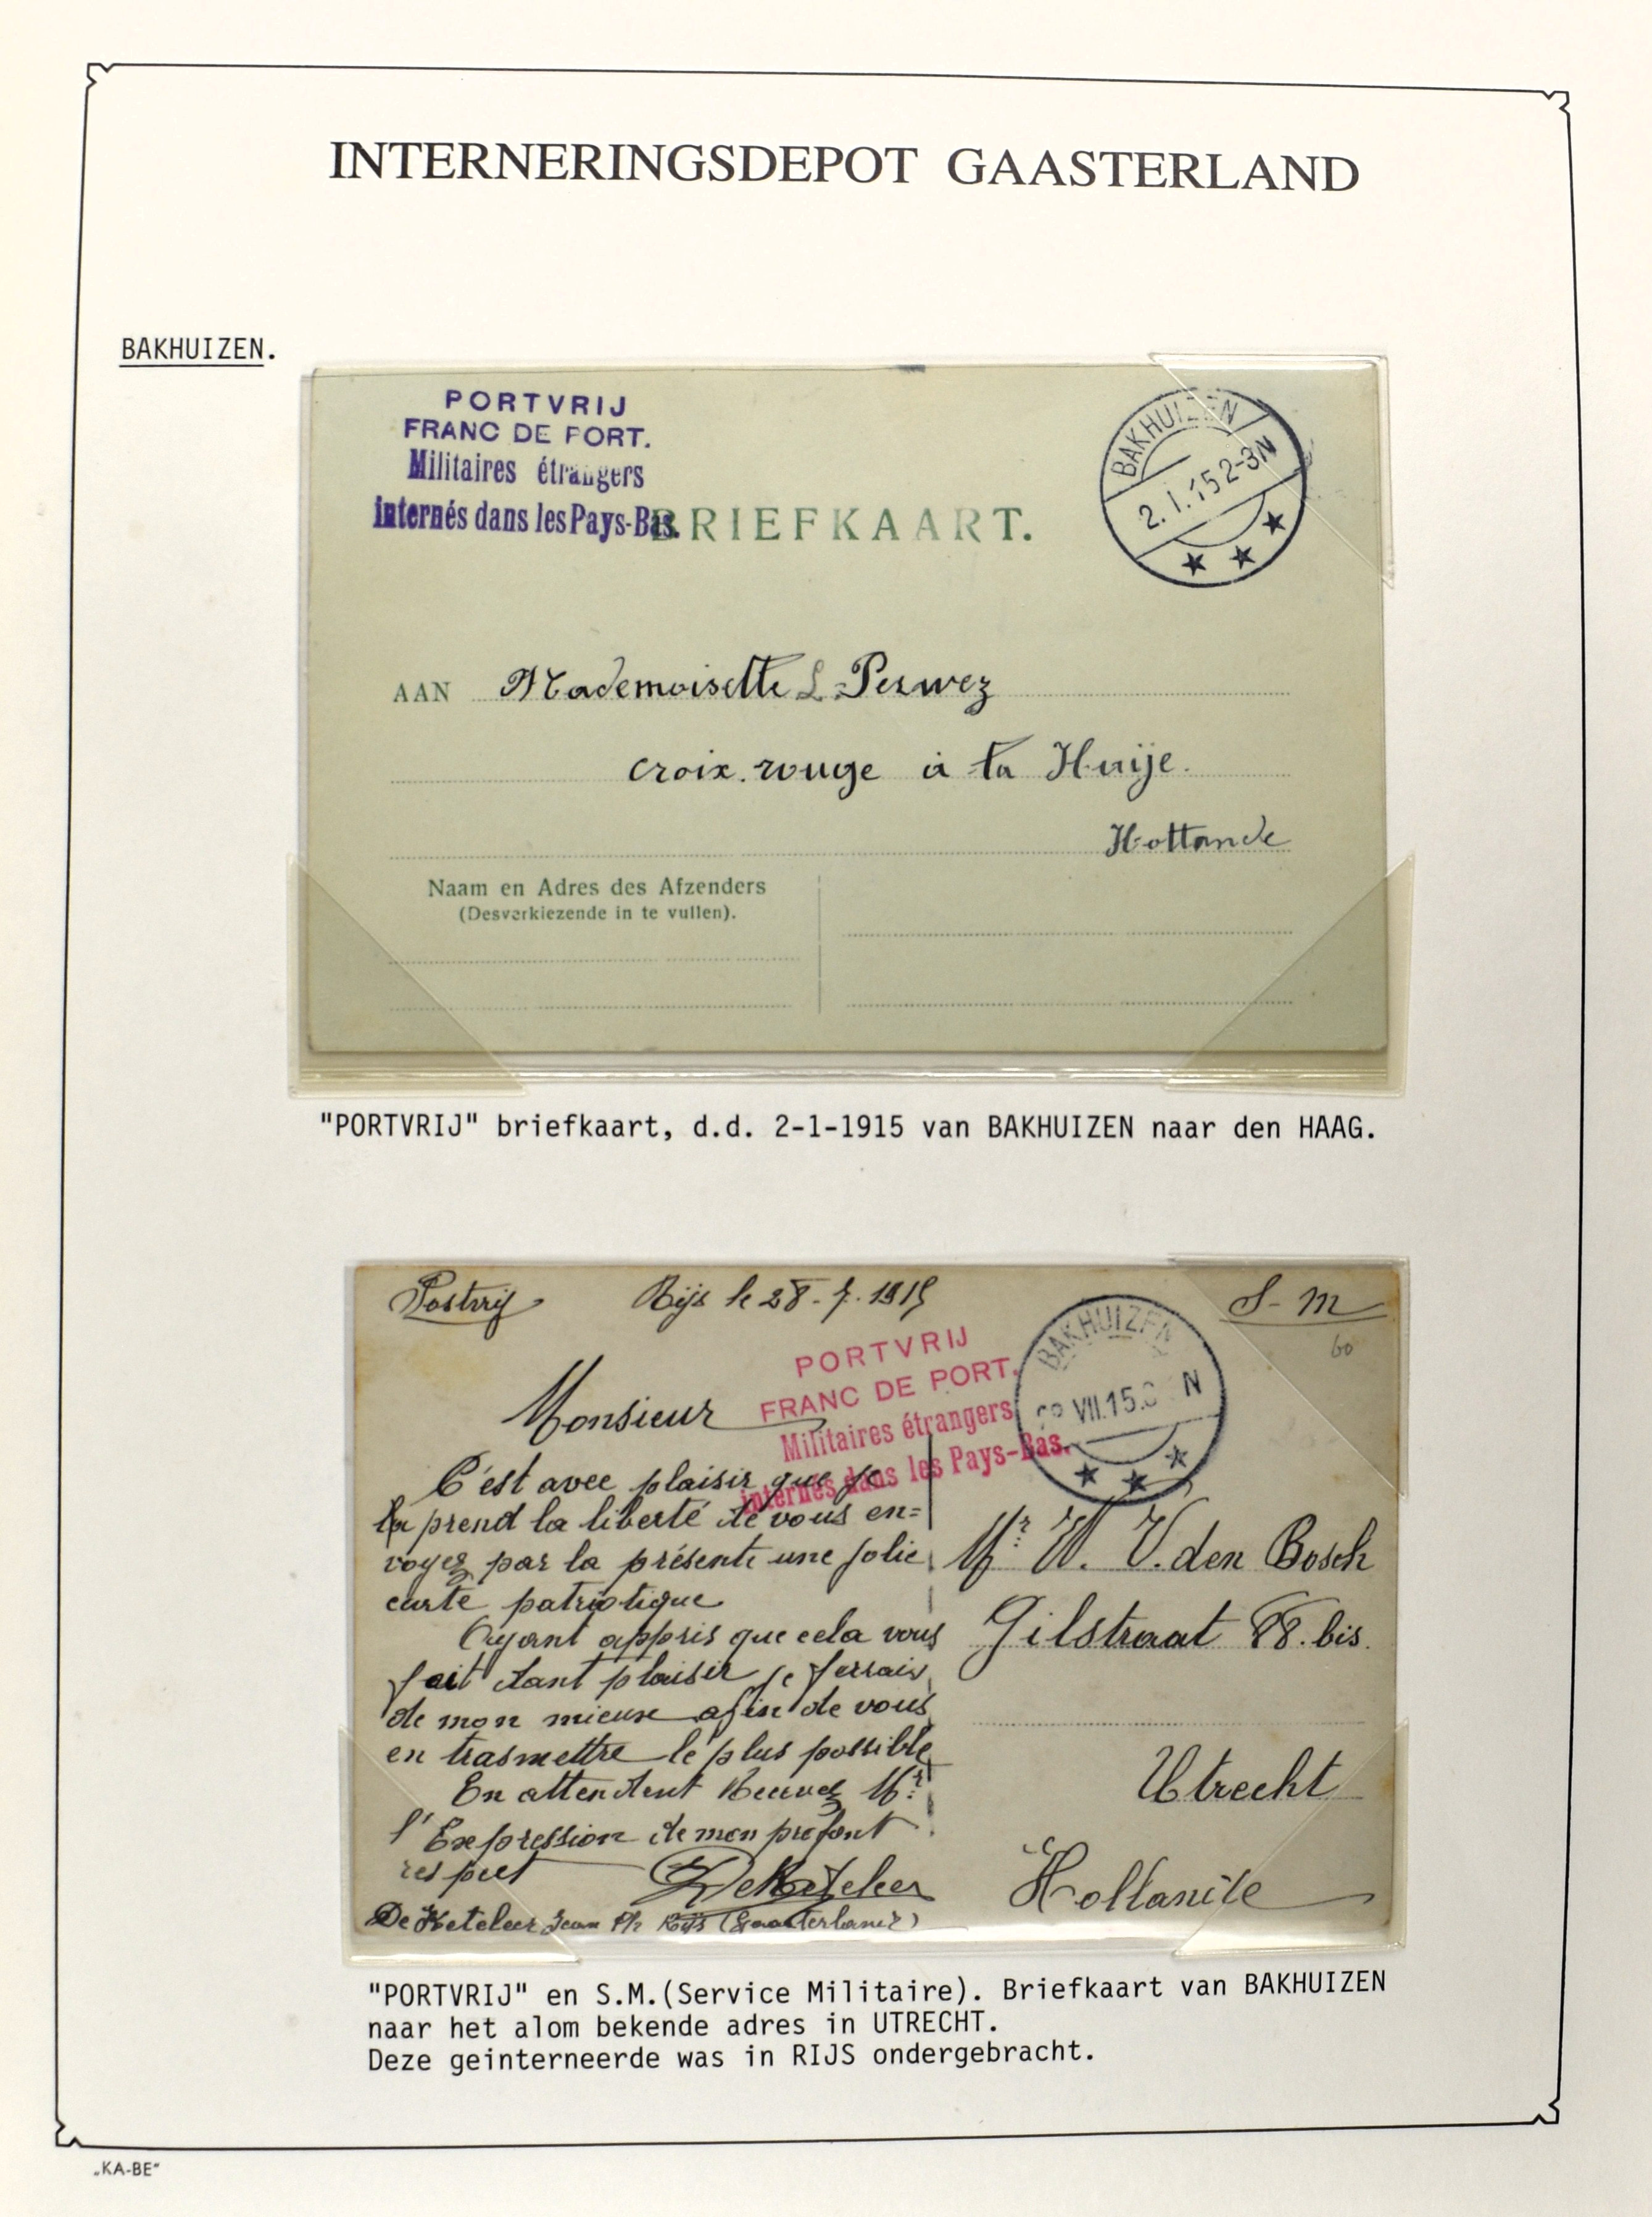 INTERNERINGSDEPOT GAASTERLAND
BAKHUIZEN.
PORTVRIJ
FRANC DE PORT.
Militaires étrangers
internés dans les Pays-Bas.
BRIEFKAART.
BAKHUIZEN
2.1.15 2-3N
AAN Mademoiselle L. Perwez
croix.rouge à la Huije.
Hollande
Naam en Adres des Afzenders
(Desverkiezende in te vullen).
"PORTVRIJ" briefkaart, d.d. 2-1-1915 van BAKHUIZEN naar den HAAG.
Postvrij Rijs le 28-7-1915 S-M
60
PORTVRIJ
FRANC DE PORT.
Militaires étrangers
internés dans les Pays-Bas.
BAKHUIZEN
VII.15. N
Monsieur
C'est avec plaisir que je
prend la liberté de vous en=
voyez par la présente une jolie
carte patriotique
Ayant appris que cela vous
fait tant plaisir je ferrais
de mon mieux afin de vous
en trasmettre le plus possible
En attendent Recevez Mr
l'Expression de mon profont
respect DeKeteleer
De Keteleer Jean Rijs (Gaasterland)
Mr W. V. den Bosch
Gilstraat 88.bis.
Utrecht
Hollande
"PORTVRIJ" en S.M.(Service Militaire). Briefkaart van BAKHUIZEN
naar het alom bekende adres in UTRECHT.
Deze geinterneerde was in RIJS ondergebracht.
„KA-BE"